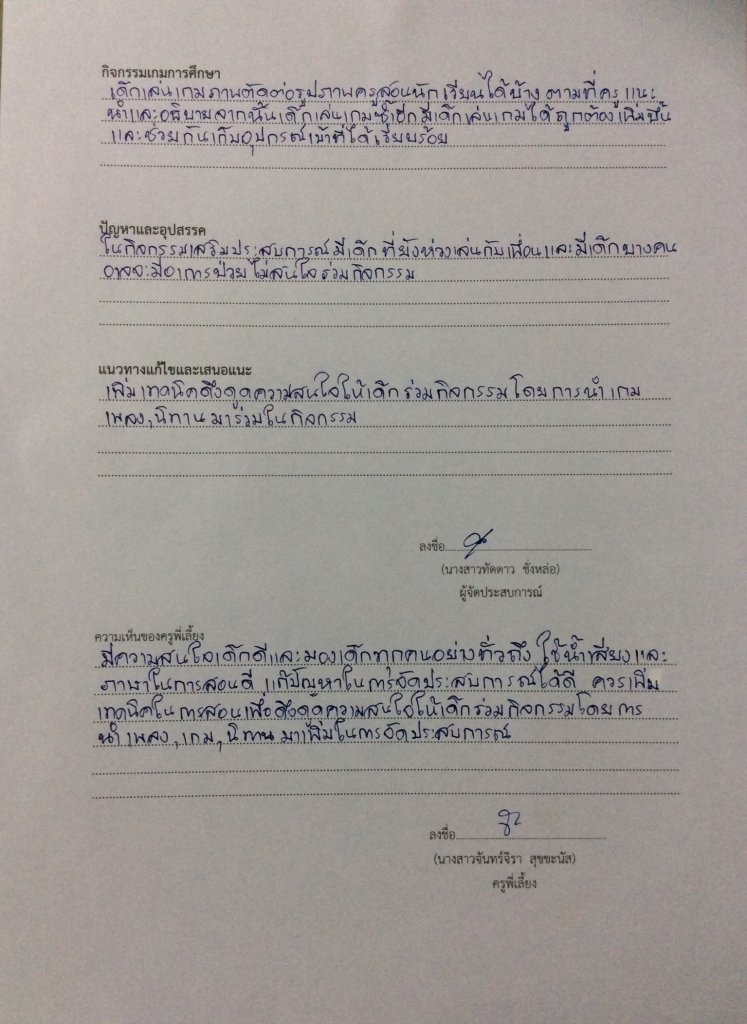 กิจกรรมเกมการศึกษา
เด็กเล่นเกมภาพตัดต่อรูปภาพครูสอนนักเรียนได้บ้าง ตามที่ครูแนะ
นำและอธิบายจากนั้นเด็กเล่นเกมซ้ำอีกมีเด็กเล่นเกมได้ถูกต้องเพิ่มขึ้น
และช่วยกันเก็บอุปกรณ์เข้าที่ได้เรียบร้อย
ปัญหาและอุปสรรค
ในกิจกรรมเสริมประสบการณ์มีเด็กที่ยังห่วงเล่นกับเพื่อนและมีเด็กบางคน
อาจจะมีอาการป่วยไม่สนใจร่วมกิจกรรม
แนวทางแก้ไขและเสนอแนะ
เพิ่มเทคนิคดึงดูดความสนใจให้เด็กร่วมกิจกรรมโดยการนำเกม
เพลง,นิทานมาร่วมในกิจกรรม
ลงชื่อ
(นางสาวทัดดาว ชั่งหล่อ)
ผู้จัดประสบการณ์
ความเห็นของครูพี่เลี้ยง
มีความสนใจเด็กดีและมองเด็กทุกคนอย่างทั่วถึง ใช้น้ำเสียงและ
ภาษาในการสอนดี แก้ปัญหาในการจัดประสบการณ์ได้ดี ควรเพิ่ม
เทคนิคในการสอนเพื่อดึงดูดความสนใจให้เด็กร่วมกิจกรรมโดยการ
นำเพลง,เกม,นิทานมาเพิ่มในการจัดประสบการณ์
ลงชื่อ
(นางสาวจันทร์จิรา สุขขะนัส)
ครูพี่เลี้ยง